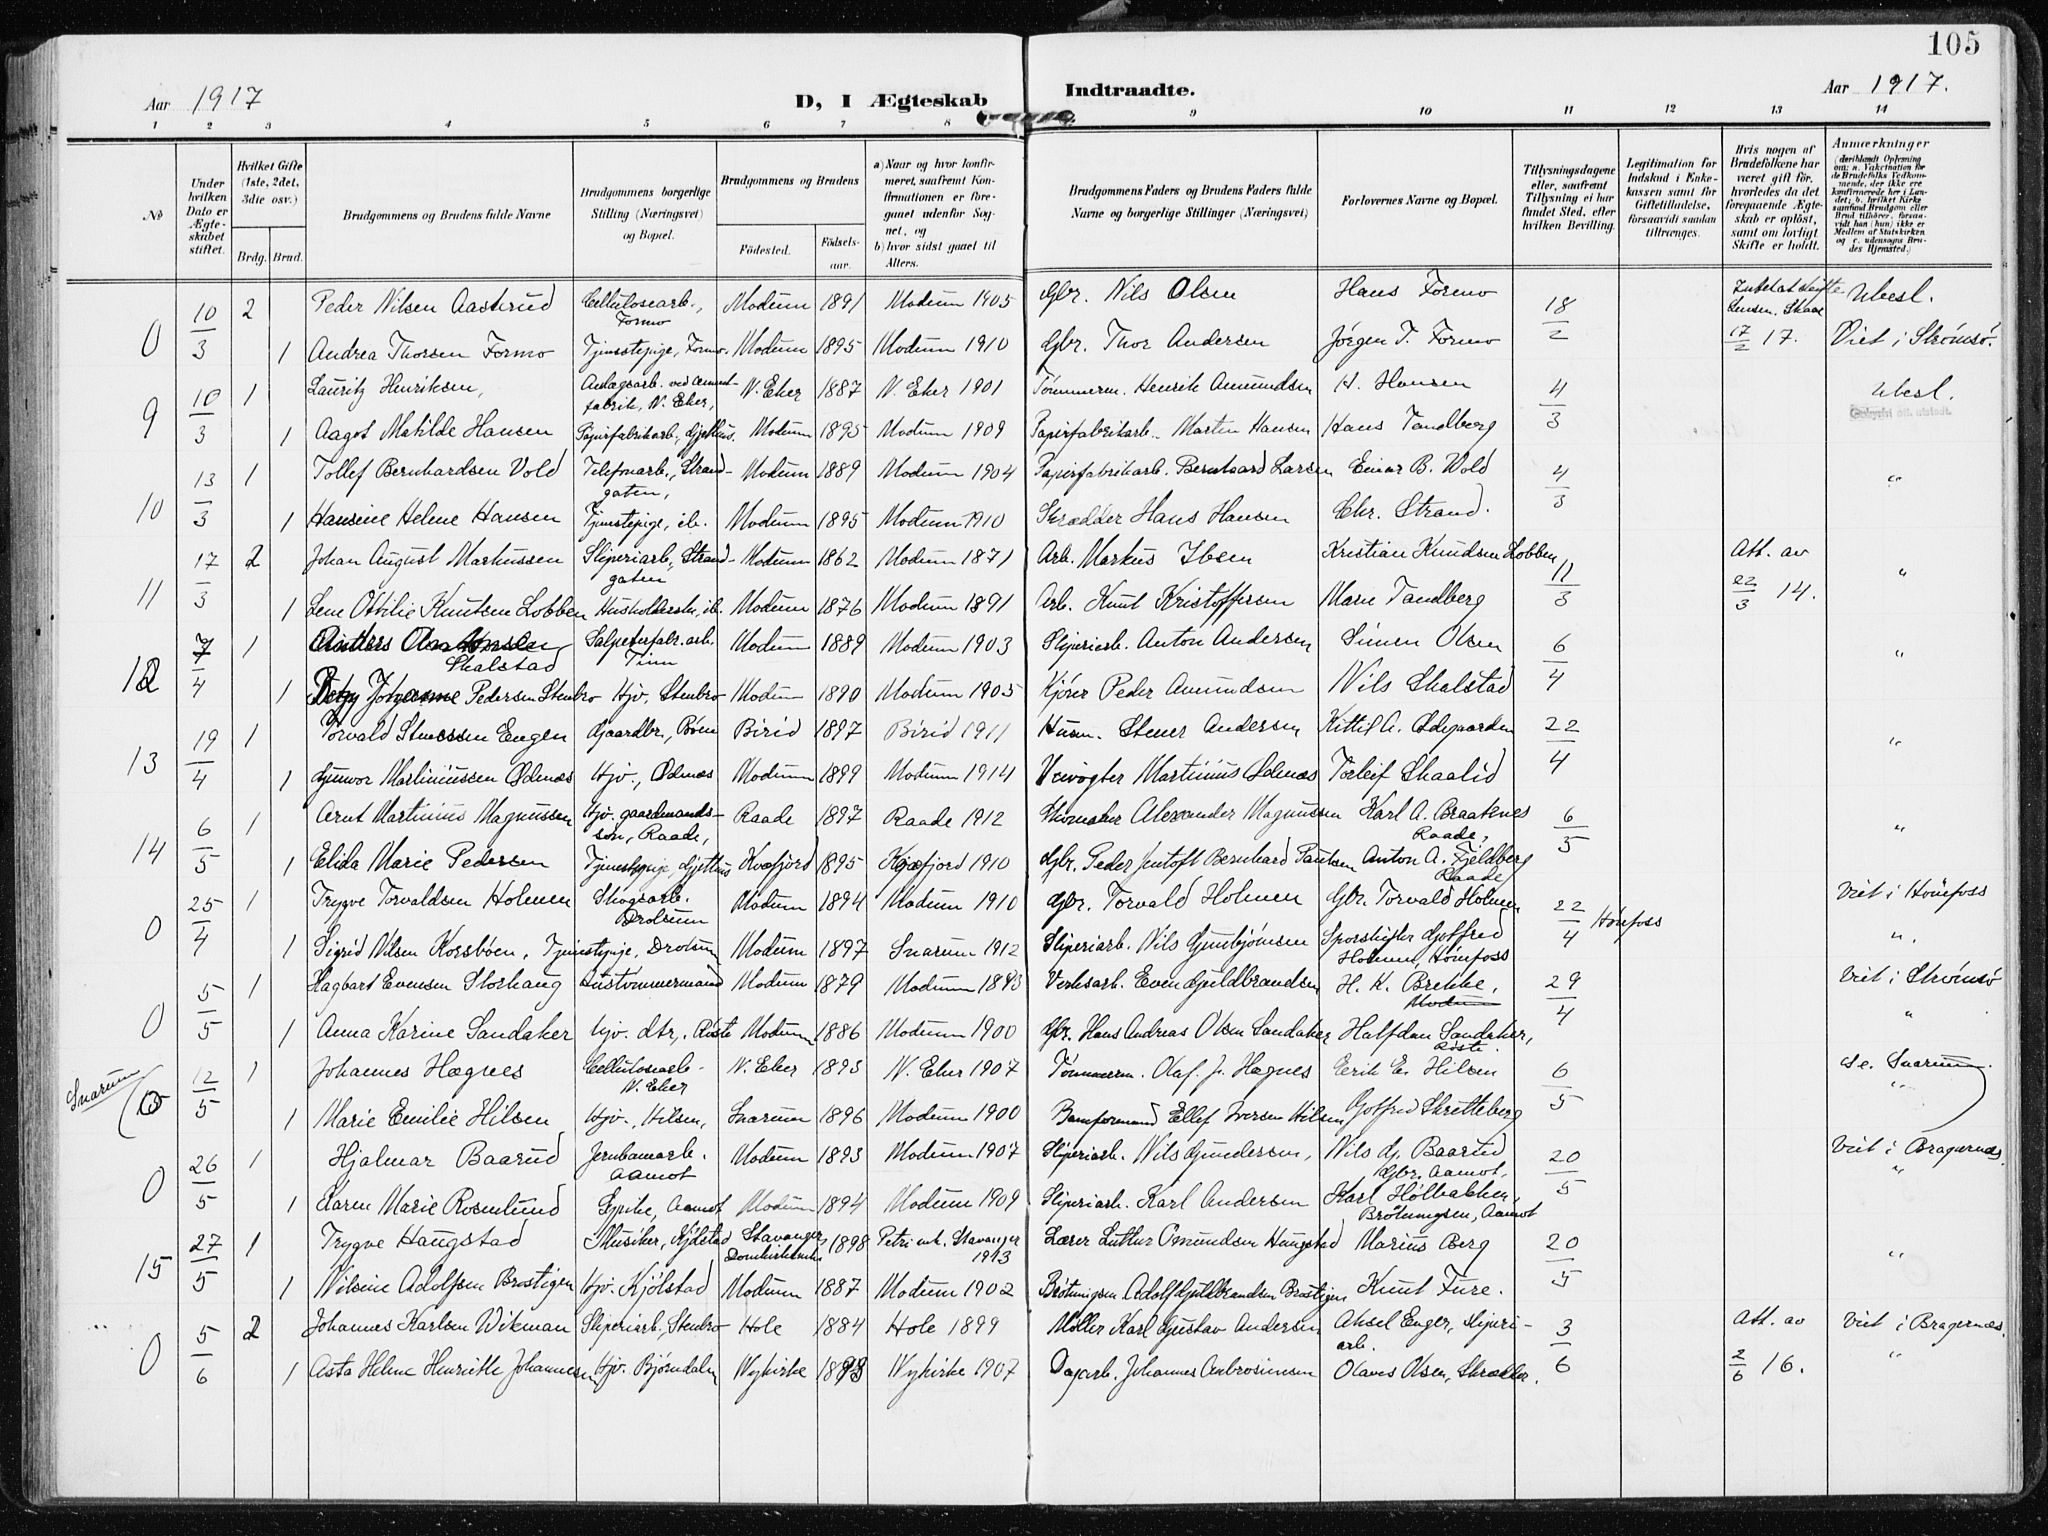 105
Aar 1917
D, I Ægteskab Indtraadte.
Aar 1917.
1 2 3 4 5 6 7 8 9 10 11 12 13 14
No
Under hvilken Dato er Ægteskabet stiftet.
Hvilket Gifte (1ste, 2det, 3die osv.)
Brdg. Brud.
Brudgommens og Brudens fulde Navne
Brudgommens borgerlige Stilling (Næringsvei) og Bopæl.
Brudgommens og Brudens
Födested. Födsels-aar.
a) Naar og hvor konfirmeret, saafremt Konfirmationen er foregaaet udenfor Sognet, og
b) hvor sidst gaaet til Alters.
Brudgommens Faders og Brudens Faders fulde Navne og borgerlige Stillinger (Næringsvei)
Forlovernes Navne og Bopæl.
Tillysningsdagene eller, saafremt Tillysning ei har fundet Sted, efter hvilken Bevilling.
Legitimation for Indskud i Enkekassen samt for Giftetilladelse, forsaavidt saadan tiltrænges.
Hvis nogen af Brudefolkene har været gift för, hvorledes da det foregaaende Ægteskab er oplöst, samt om lovligt Skifte er holdt.
Anmærkninger
0 10/3 2 Peder Nilsen Aasterud Cellulosearb., Formo Modum 1891 Modum 1905 Gbr. Nils Olsen Hans Formo 18/2 Ubesl.
1 Andrea Thorsen Formo Tjenestepige, Formo Modum 1895 Modum 1910 Gbr. Thor Andersen Jörgen T. Formo 17/2 17. Viet i Strömsö.
9 10/3 1 Lauritz Henriksen, Anlægsarb. ved Cementfabrik, N. Eker, N. Eker 1887 N. Eker 1901 Tömmerm. Henrik Amundsen H. Hansen 4/3 Ubesl.
1 Aagot Matilde Hansen Papirfabrikarb., Gjethus. Modum 1895 Modum 1909 Papirfabrikarb. Martin Hansen Hans Tandberg
10 13/3 1 Tollef Bernhardsen Vold Telefonarb., Strandgaten, Modum 1889 Modum 1904 Papirfabrikarb. Bernhard Larsen Einar B. Wold 4/3 "
1 Hansine Helene Hansen Tjenestepige, ib. Modum 1895 Modum 1910 Skrædder Hans Hansen Chr. Strand.
11 17/3 2 Johan August Markussen Sliperiarb., Strandgaten Modum 1862 Modum 1871 Arb. Markus Ibsen Kristian Knudsen Lobben 11/3 Att. av "
1 Lene Ottilie Knutsen Lobben Husholderske, ib. Modum 1876 Modum 1891 Arb. Knut Kristoffersen Marie Tandberg 22/3 14.
12 7/4 1 Anders Antonsen Skalstad Salpeterfabr.arb. Tinn Modum 1889 Modum 1903 Sliperiarb. Anton Andersen Simen Olsen 6/4 "
1 Pedersen Stenbro Hjv. Stenbro Modum 1890 Modum 1905 Kjörer Peder Amundsen Nils Skalstad
13 19/4 1 Torvald Stenersen Engen Gaardbr., Böen Birid 1897 Birid 1911 Husm. Stener Andersen Kittil A. Ødegaarden 22/4 "
1 Gunvor Martiniussen Ødenæs Hjv., Ødenæs Modum 1899 Modum 1914 Veivogter Martinius Ødenæs Torleif Skaalid
14 6/5 1 Arnt Martinius Magnussen Hjv. gaardmandssön, Raade, Raade 1897 Raade 1912 Skomaker Alexander Magnussen Karl A. Braaknes Raade, 6/5 "
1 Elida Marie Pedersen Tjenestepige, Gjethus Kvæfjord 1895 Kvæfjord 1910 Gbr. Peder Jentoft Bernhard Paulsen Anton A. Fjeldberg Raade
0 25/4 1 Trygve Torvaldsen Holmen Skogsarb. Drolsum Modum 1894 Modum 1910 Gbr. Torvald Holmen Gbr. Torvald Holmen 22/4 Hönefoss Viet i Hönefoss
1 Sigrid Nilsen Korsböen, Tjenestepige, Drolsum Modum 1897 Snarum 1912 Sliperiarb. Nils Gunbjörnsen Sporskifter Gotfred Holmen Hönefoss "
0 5/5 1 Hagbart Evensen Storhaug Hustömmermand Modum 1879 Modum 1893 Verksarb. Even Guldbrandsen H. K. Brekke, Modum 29/4 Viet i Strömsö
1 Anna Karine Sandaker Hjv. dtr., Röste Modum 1886 Modum 1900 Gbr. Hans Andreas Olsen Sandaker Halfdan Sandaker, Röste. "
Snarum 12/5 1 Johannes Hægnes Cellulosearb. N. Eker N. Eker 1893 N. Eker 1907 Tömmerm. Olaf J. Hægnes Erik E. Hilsen 6/5 Se. Snarum.
1 Marie Emilie Hilsen Hjv., Hilsen, Snarum 1896 Modum 1900 Bomformand Ellef Iversen Hilsen Gotfred Skretteberg "
0 26/5 1 Hjalmar Baarud Jernbanearb. Aamot Modum 1893 Modum 1907 Sliperiarb. Nils Gundersen, Nils G. Baarud Gbr. Aamot. 20/5 Viet i Bragernæs.
1 Karen Marie Rosenlund Syerske, Aamot Modum 1894 Modum 1909 Sliperiarb. Karl Andersen Karl Hölbakken, Aamot "
15 27/5 1 Trygve Haugstad Musiker, Kjölstad Stavanger Domkirke 1898 Petri mk. Stavanger 1913 Lærer Luttur Omundsen Haugstad Marius Berg 20/5 "
1 Nilsine Adolfsen Bråstigen Hjv. Kjölstad Modum 1887 Modum 1902 Adolf Guldbrandsen Knut Fure.
0 5/6 2 Johannes Karlsen Wikman Sliperiarb., Stenbro Hole 1884 Hole 1899 Möller Karl Gustav Andersen Aksel Enger, sliperiarb. 3/6 Att. av Viet i Bragernæs.
1 Asta Helene Henriette Johannesen Hjv. Björndalen Nykirke 1893 Nykirke 1907 Dagarb. Johannes Ambrosiussen Olaves Olsen, Skrædder. 2/6 16. "